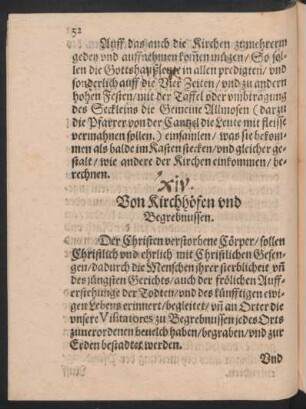 52
Auff das auch die Kirchen zumehrerm
gedey vnd auffnehmen kom̃en mügen / So sol-
len die Gottshaußleute in allen predigten / vnd
sonderlich auff die Vier Zeiten / vnd zu andern
hohen Festen / mit der Taffel oder vmbitragung
des Seckleins die Gemeine Allmosen (darzu
die Pfarrer von der Cantzel die Leute mit fleisse
vermahnen sollen.) einsamlen / was sie bekom-
men als balde im Kasten stecken / vnd gleicher ge-
stalt / wie andere der Kirchen einkommen / be-
rechnen.
XIV.
Von Kirchhöfen vnd
Begrebnussen.
Der Christen verstorbene Cörper / sollen
Christlich vnd ehrlich mit Christlichen Gesen-
gen / dadurch die Menschen jhrer sterbligheit vñ
des jüngsten Gerichts / auch der frölichen Auff-
erstehunge der Todten / vnd des künfftigen ewi-
gen Lebens erinnert / begleitet / vñ an Orter die
vnsere Visitatores zu Begrebnussen jedes Orts
zuuerordenen beuelch haben / begraben / vnd zur
Erden bestadtet werden.
Vnd